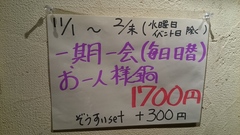 11/1 ～ 2/末 (水曜日
イベント日 除く)
一期一会(毎日日替)
お一人様鍋
1700円
ぞうすいset +300円